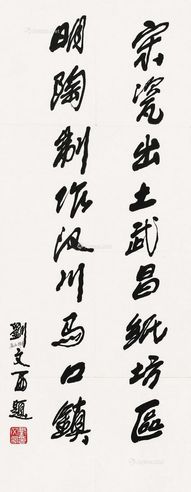 宋瓷出土武昌纸坊區
明陶制作汉川马口鎮
劉文西題